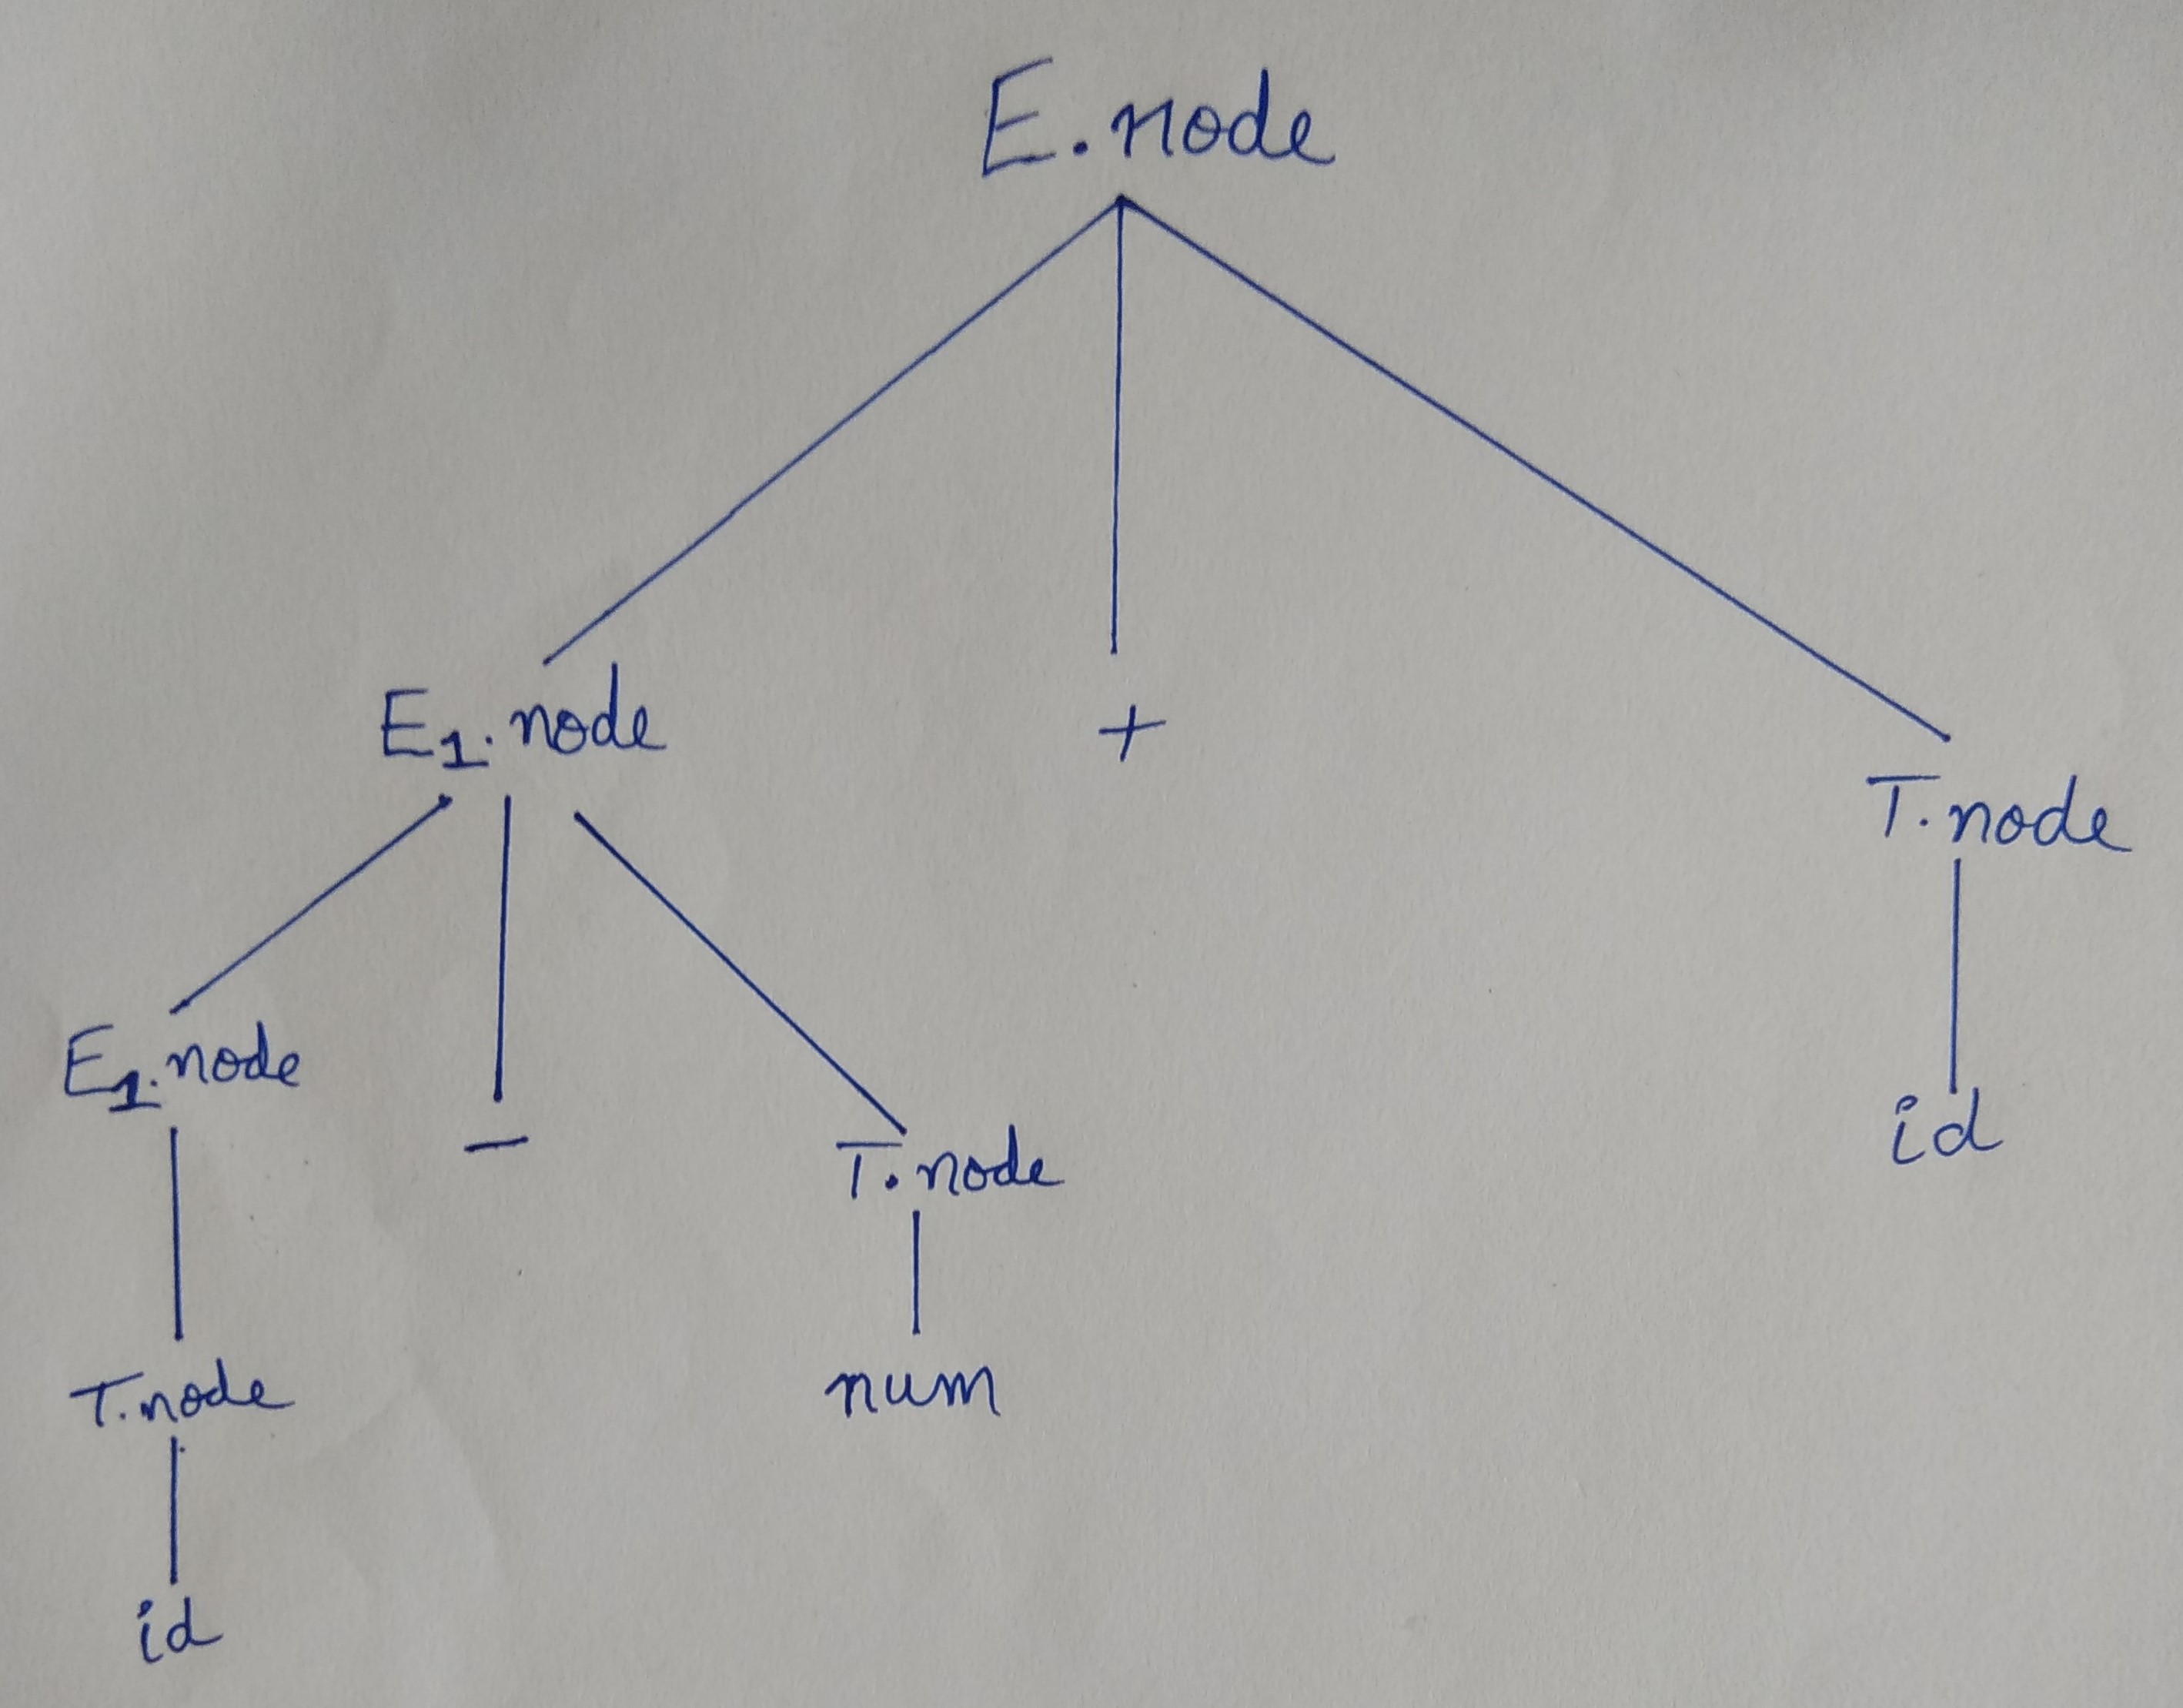 E.node
E1.node + T.node
E1.node - T.node id
T.node num
id